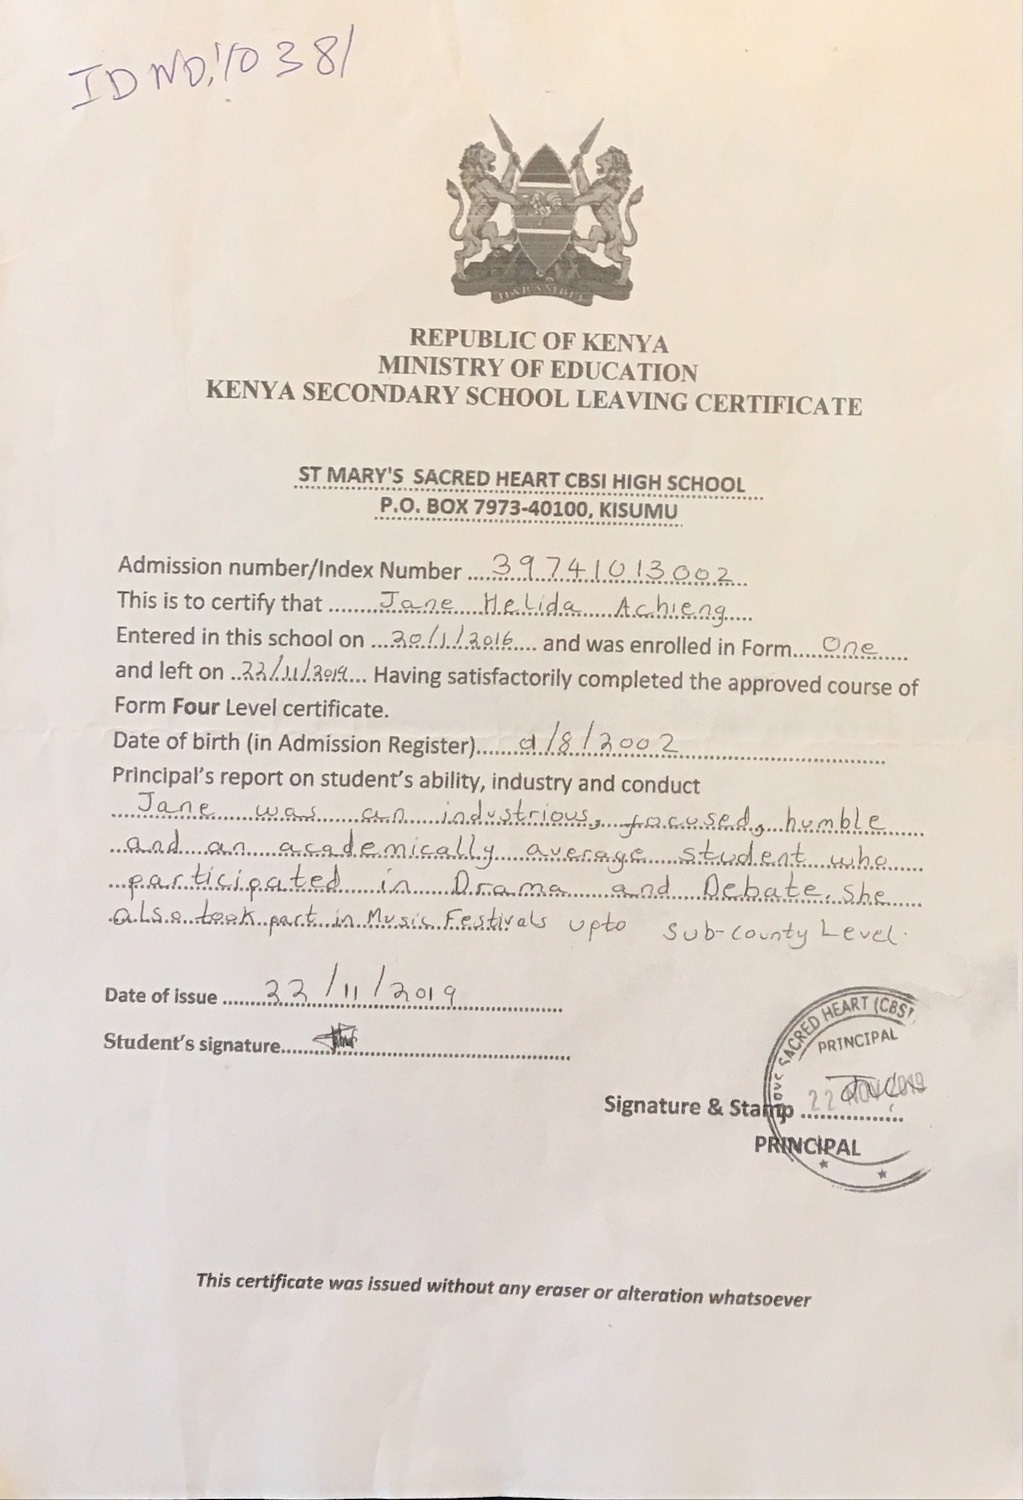 ID NO: 10381
HARAMBEE
REPUBLIC OF KENYA
MINISTRY OF EDUCATION
KENYA SECONDARY SCHOOL LEAVING CERTIFICATE
ST MARY'S SACRED HEART CBSI HIGH SCHOOL
P.O. BOX 7973-40100, KISUMU
Admission number/Index Number ....39741013002...
This is to certify that ........Jane Helida Achieng.....
Entered in this school on ...20/1/2016.... and was enrolled in Form.....One.....
and left on ..22/11/2019... Having satisfactorily completed the approved course of
Form Four Level certificate.
Date of birth (in Admission Register)......./8/2002..........
Principal's report on student's ability, industry and conduct
Jane was an industrious, focused, humble
and an academically average student who
participated in Drama and Debate. She
also took part in Music Festivals upto Sub-county Level.
Date of issue .......22/11/2019..........
Student's signature..........
SACRED HEART (CBSI
PRINCIPAL
22 NOV 2019
Signature & Stamp ...............
PRINCIPAL
This certificate was issued without any eraser or alteration whatsoever